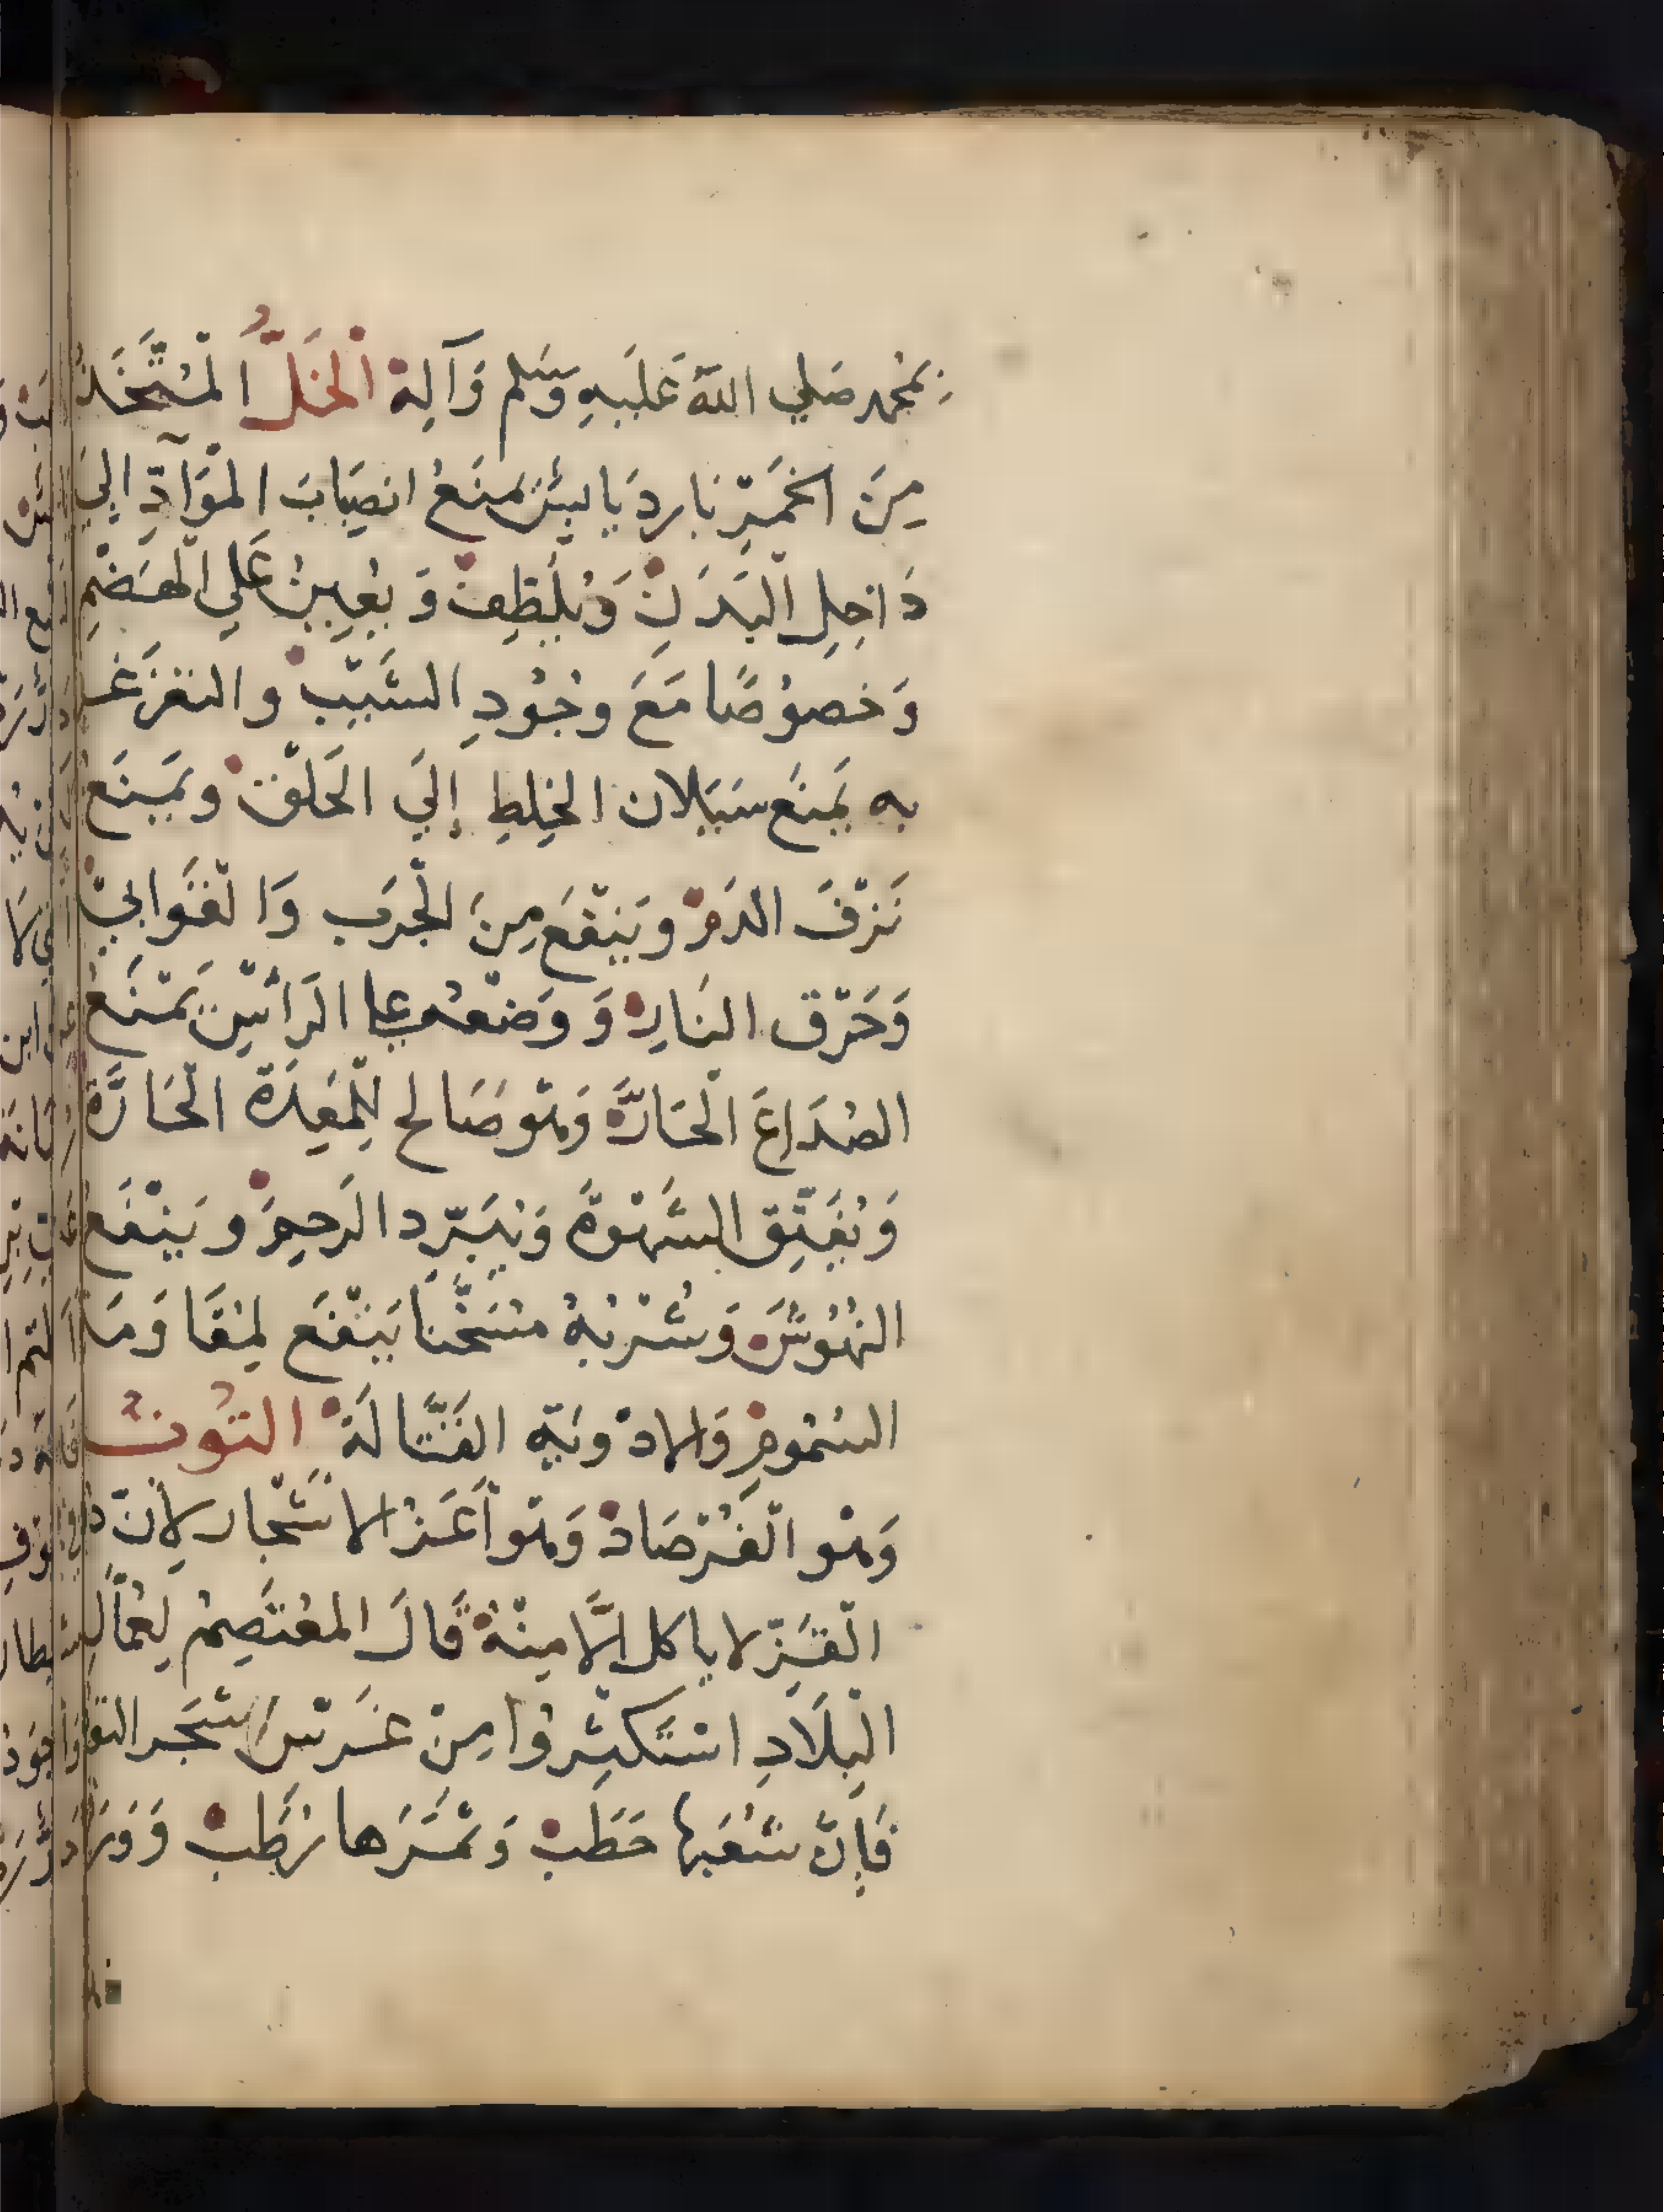 بمُحمد صَلي اللهَ عَليَهِ وَسَلم وَآلِهْ الْخَلُّ الْمُتَّخَذُ
مِنَ الخَمَرِ بَارِد يَابِسْ يَمنَعُ انصِبَابَ الْمَوَآدِّ اِليَ
دَاخِلِ الْبَدَنِ وَيُلَطِفْ وَيُعِينُ عَلي الْهَضْمِ
وَخصوُصًا مَعَ وجُودِ السَّبَبْ والتغَرغـ
به يَمنَع سَيَلان الخِلطِ إليَ الحَلْقْ وَيَمنَعُ
نَزْفَ الدَمْ وَيَنْفَع مِنَ الْجَرَب وَالْقَوَابيْ
وَحَرْق النَارِ وَوَضْعُه علي الرَأسِ يَمْنَعُ
الصُدَاعَ الْحَارَّ وَهْوَ صَالح لِلْمَعِدَة الْحَارَّة
وَيُفَتِّق الشَّهْوَةً وَيُبَرِّد الرَحِمْ وَيَنْفَعُ
النُهُوُشْ وَشُرْبُهُ مُسَخَّنَا يَنْفَع لِمُقَاوَمَـ
السُمُومِ وَالادْويَهِ القَتَّالَةْ التوُتُ
وَهْو الْفُرْصَادْ وَهْو اَعَزُ الاشْجَار لاِنَّ دوُد
الْقَزِّ لا ياكل اِلَّا مِنْهُ قَالَ المعْتَصِمْ لِعُمَّال
الْبِلَادِ اسْتَكثِروُا مِنْ غَرْسْ شَجَر التو
فَاِنَّ شُعَبَها حَطَبْ وَثَمَرَها رُطَبْ وَوَرَ